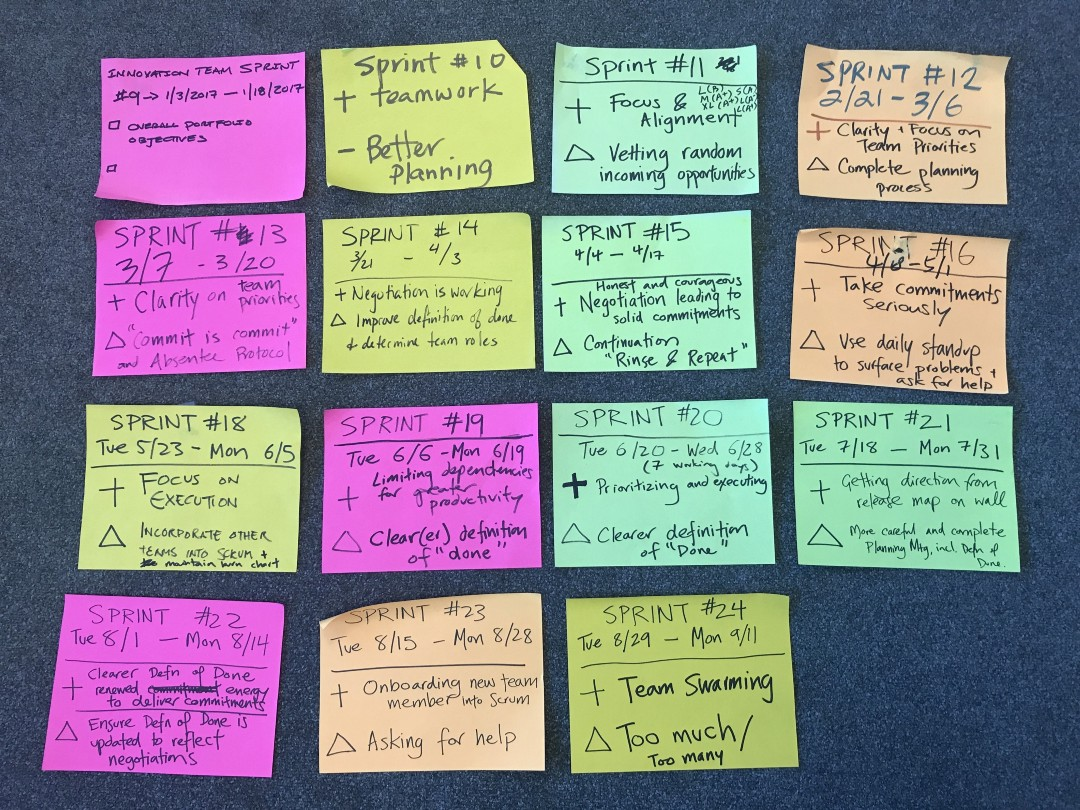 INNOVATION TEAM SPRINT
#9 → 1/3/2017 — 1/18/2017
□ OVERALL PORTFOLIO
OBJECTIVES
□
Sprint #10
+ teamwork
- Better
Planning
Sprint #11
+ Focus &
Alignment
L(B) S(A)
M(A+) L(A)
XL(A+) L(A+)
△ Vetting random
incoming opportunities
SPRINT #12
2/21 - 3/6
+ Clarity + Focus on
Team Priorities
△ Complete planning
process
SPRINT #13
3/7 - 3/20
+ Clarity on team
priorities
△ "Commit is commit"
and Absentee Protocol
SPRINT #14
3/21 - 4/3
+ Negotiation is working
△ Improve definition of done
+ determine team roles
SPRINT #15
4/4 - 4/17
Honest and courageous
+ Negotiation leading to
solid commitments
△ Continuation
"Rinse & Repeat"
SPRINT #16
5/1
+ Take commitments
seriously
△ Use daily standup
to surface problems +
ask for help
SPRINT #18
Tue 5/23 - Mon 6/5
+ FOCUS ON
EXECUTION
△ INCORPORATE OTHER
TEAMS INTO SCRUM +
maintain burn chart
SPRINT #19
Tue 6/6 - Mon 6/19
Limiting dependencies
+ for greater
productivity
△ Clear(er) definition
of "done"
SPRINT #20
Tue 6/20 - Wed 6/28
(7 working days)
+ Prioritizing and executing
△ Clearer definition
of "Done"
SPRINT #21
Tue 7/18 - Mon 7/31
+ Getting direction from
release map on wall
△ More careful and complete
Planning Mtg, incl. Defn of
Done.
SPRINT #22
Tue 8/1 - Mon 8/14
Clearer Defn of Done
+ renewed energy
to deliver commitments
△ Ensure Defn of Done is
updated to reflect
negotiations
SPRINT #23
Tue 8/15 - Mon 8/28
+ Onboarding new team
member into Scrum
△ Asking for help
SPRINT #24
Tue 8/29 - Mon 9/11
+ Team Swarming
△ Too much/
Too many